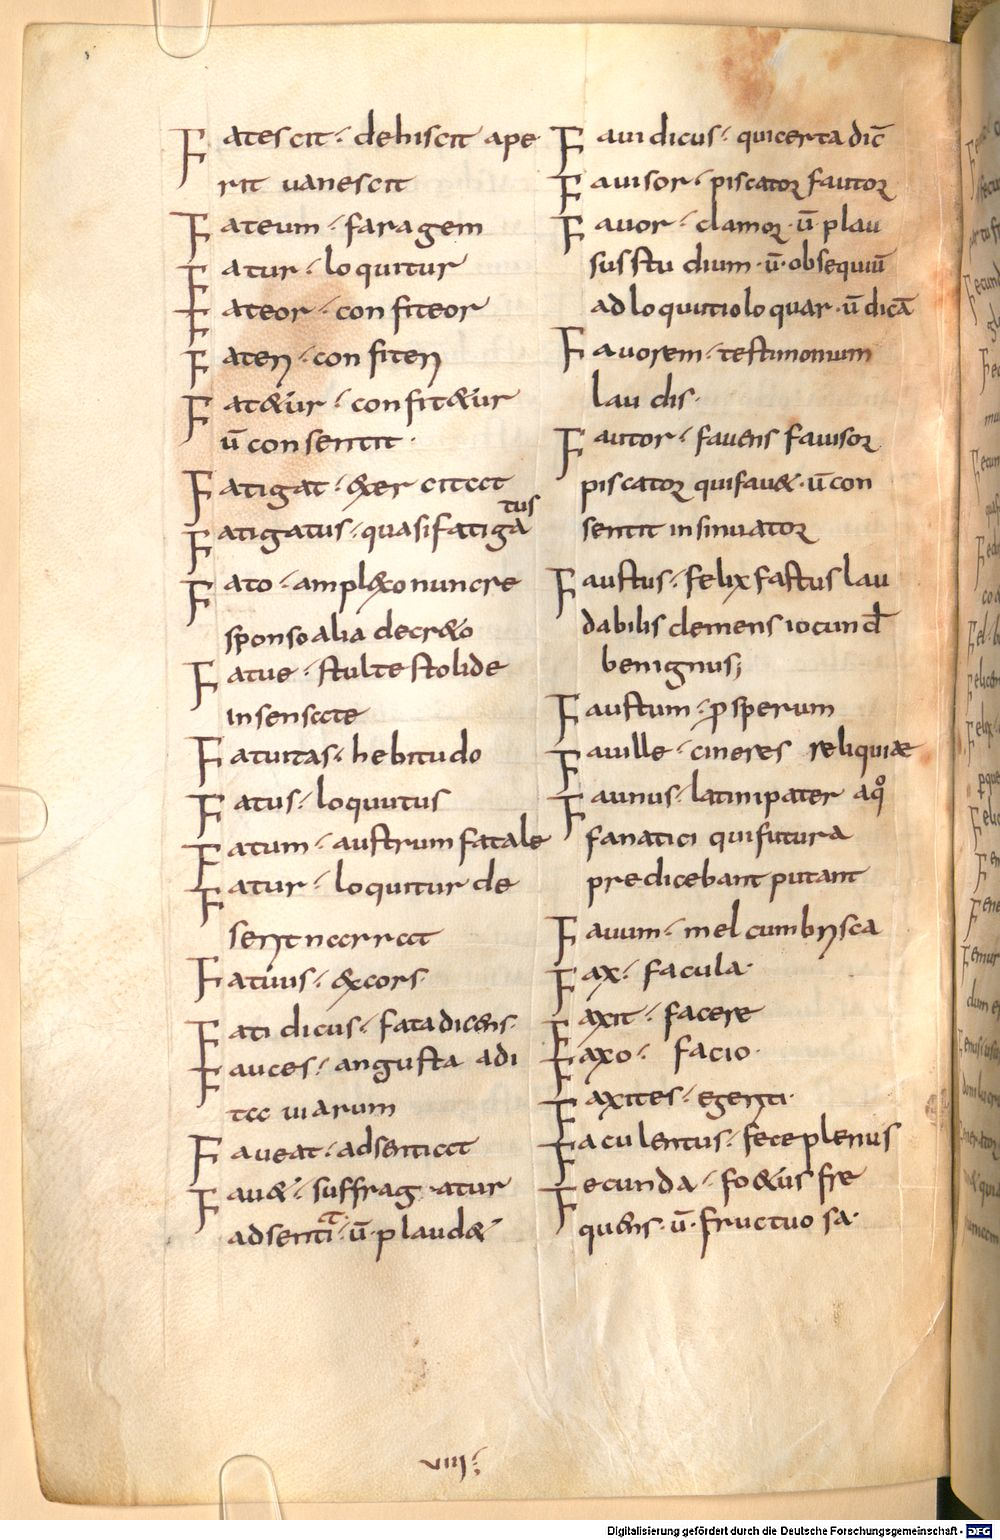 Fatescit· dehiscit ape
rit uanescit
Fateum· faragem
Fatur· loquitur
Fateor· confiteor
Fateri· confiteri
Fat&ur· confit&ur
ū consentit·
Fatigat· exercitat
Fatigatus· quasi fatigatus
Fato· amplexo nuncre
sponso alia decr&o
Fatue· stulte stolide
insensate
Fatuitas· hebitudo
Fatus· loquutus
Fatum· austrum fatale
Fatur· loquitur de
serit narrat
Fatuus· excors·
Fatidicus· fata dicens·
Fauces· angusta adi
ta uiarum
Faueat· adsentiat
Fau&· suffragatur
adsentit· ū· plaud&
Fauidicus· qui certa dic̄
Fauisor· piscator fautor
Fauor· clamor· ū· plau
sus studium· ū· obsequiū
adloquutio loquar· ū dicā
Fauorem· testimonium
laudis·
Fautor· fauens fauisor
piscator qui fau&· ū con
sentit insinuator
Faustus· felix fastus lau
dabilis clemens iocund
benignus;
Faustum· ꝓsperum
Fauille· cineres reliquiae
Faunus· latini pater a q°
fanatici qui futura
predicebant putant
Fauum· mel cum brisca
Fax· facula·
Faxit· facere
Faxo· facio·
Faxites· egeriti·
Faculentus· fece plenus
Fecunda· fo&us fre
quens· ū· fructuosa·
VIII;
Digitalisierung gefördert durch die Deutsche Forschungsgemeinschaft - DFG